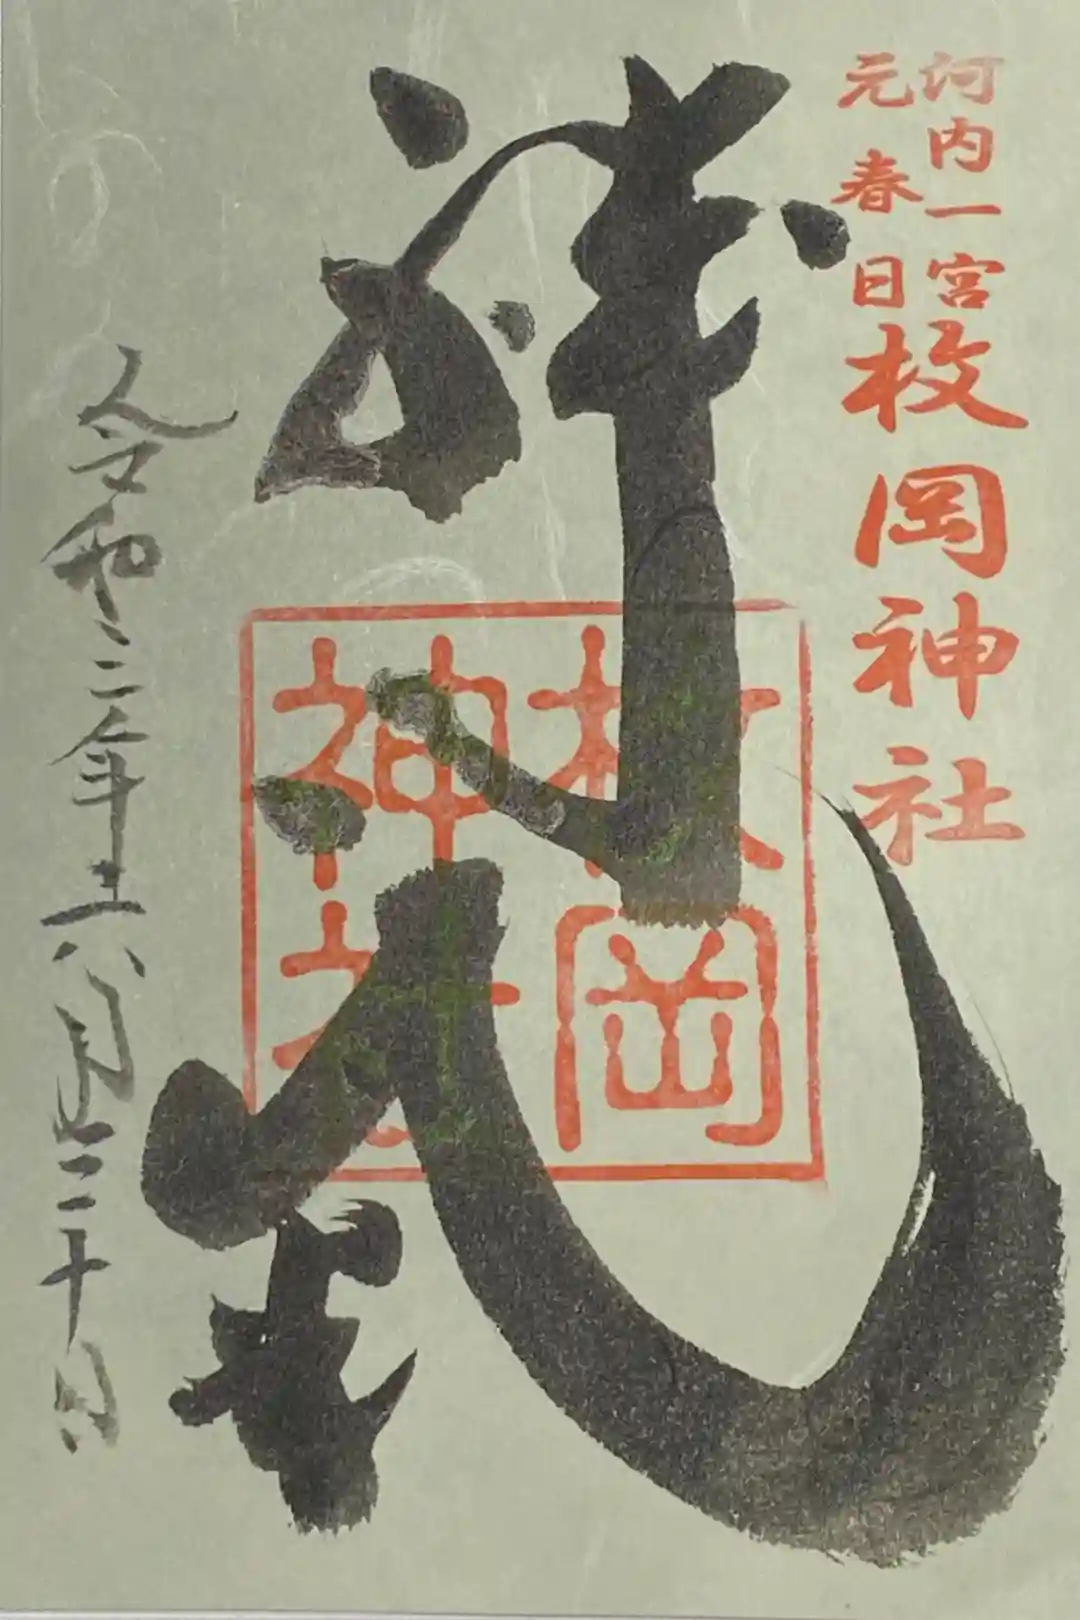 河内一宮
元春日
枚岡神社
祥
枚岡
神社
令和二年六月二十日